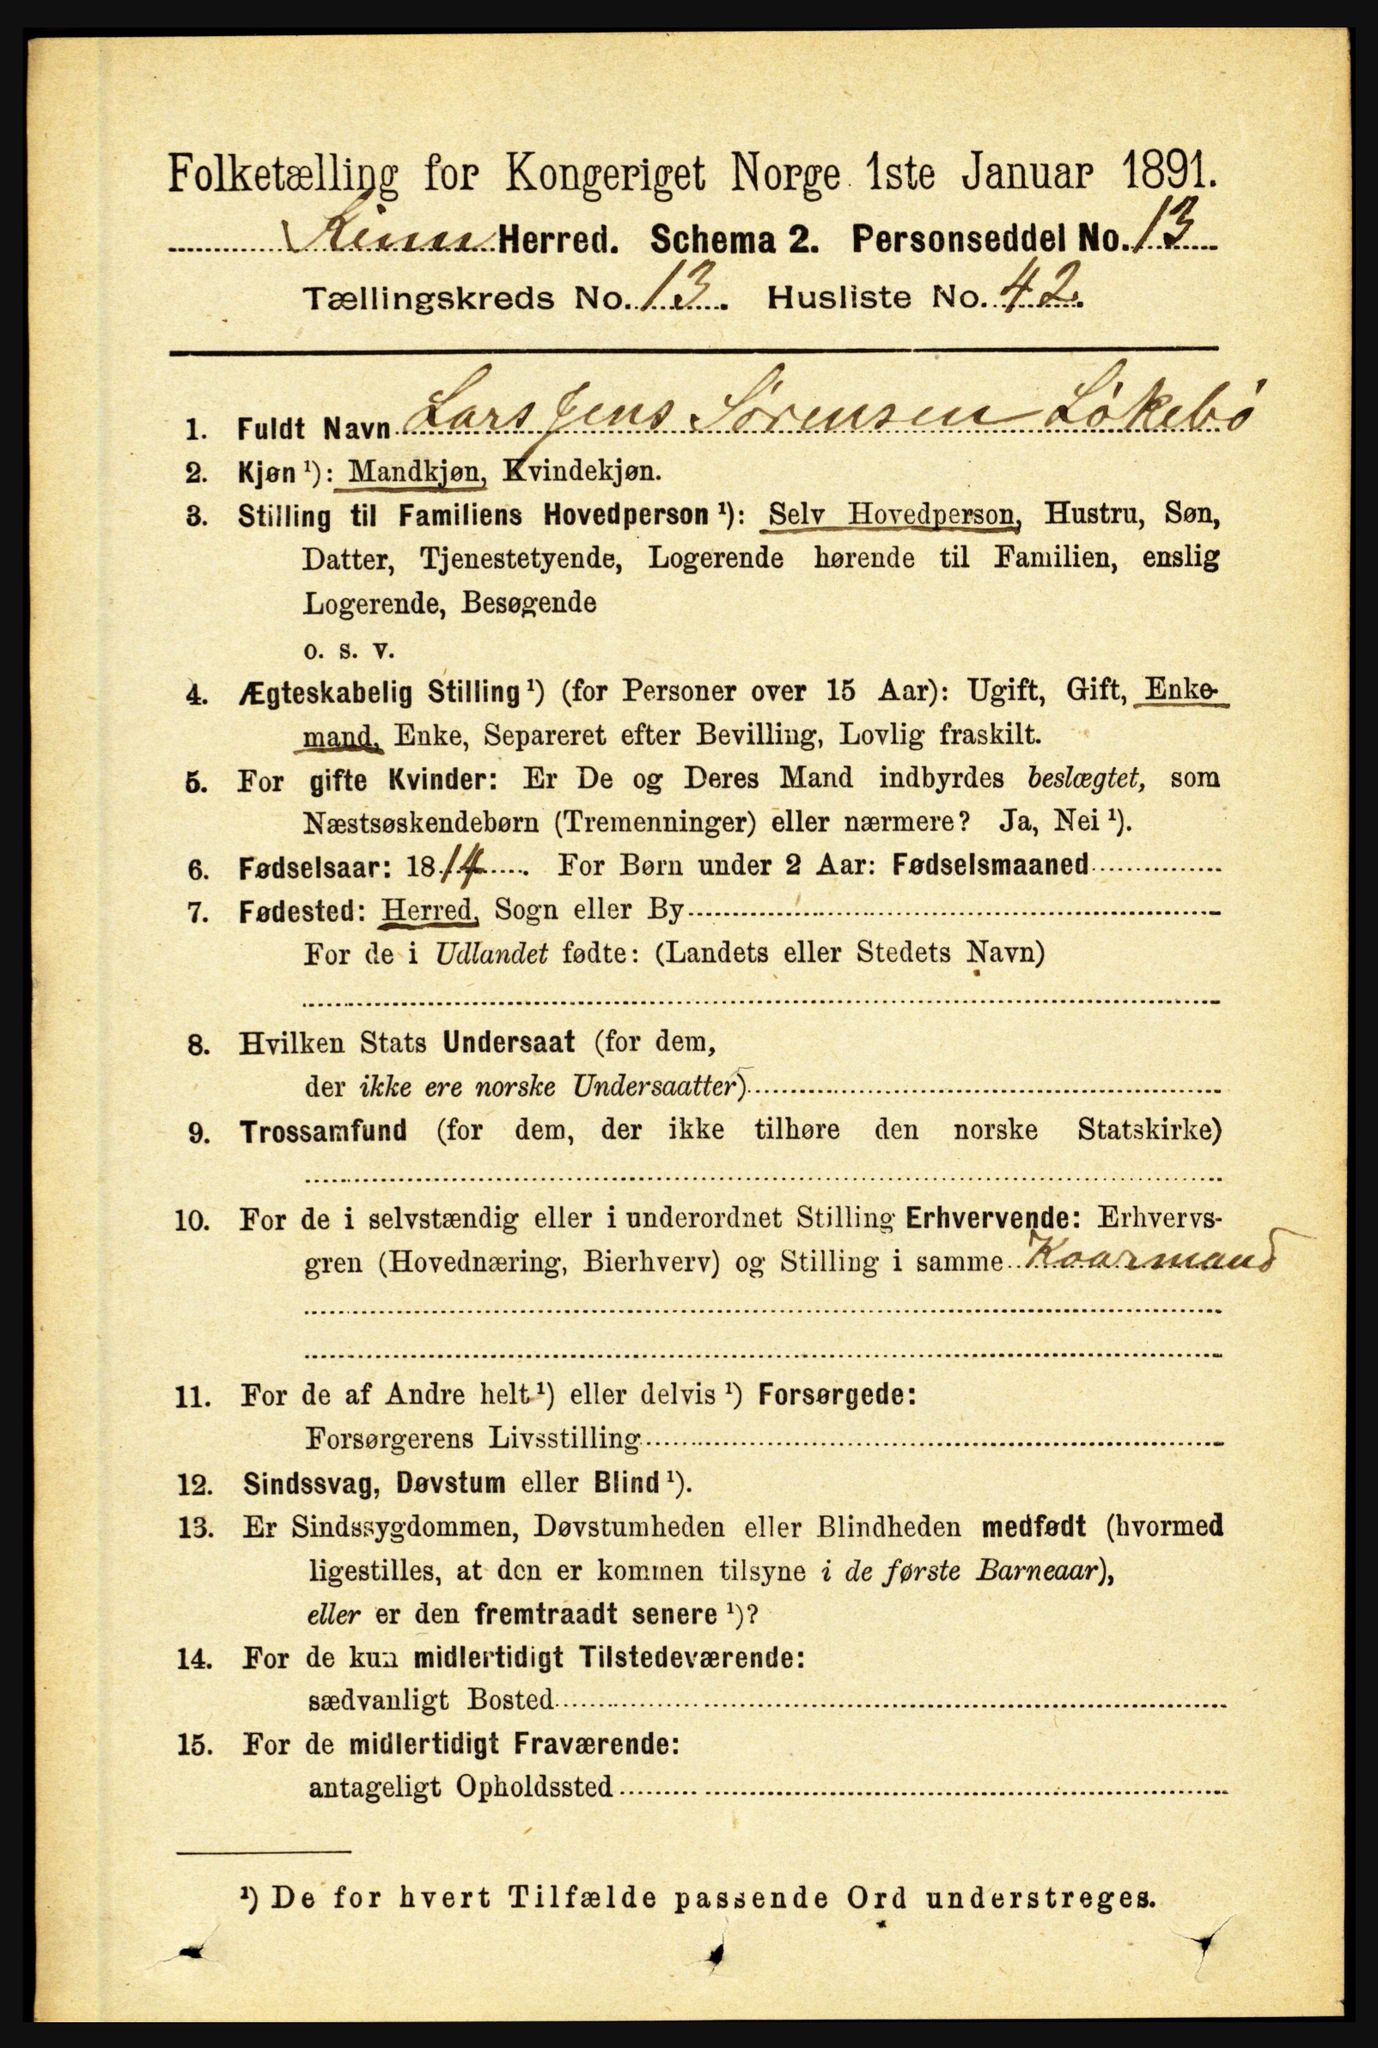 Folketælling for Kongeriget Norge 1ste Januar 1891.
Kinn Herred. Schema 2. Personseddel No. 13
Tællingskreds No. 13. Husliste No. 42.
1. Fuldt Navn Lars Jens Sørensen Løkebø
2. Kjøn ¹): Mandkjøn, Kvindekjøn.
3. Stilling til Familiens Hovedperson ¹): Selv Hovedperson, Hustru, Søn,
Datter, Tjenestetyende, Logerende hørende til Familien, enslig
Logerende, Besøgende
o. s. v.
4. Ægteskabelig Stilling ¹) (for Personer over 15 Aar): Ugift, Gift, Enke-
mand, Enke, Separeret efter Bevilling, Lovlig fraskilt.
5. For gifte Kvinder: Er De og Deres Mand indbyrdes beslægtet, som
Næstsøskendebørn (Tremenninger) eller nærmere? Ja, Nei ¹).
6. Fødselsaar: 1814. For Børn under 2 Aar: Fødselsmaaned
7. Fødested: Herred, Sogn eller By
For de i Udlandet fødte: (Landets eller Stedets Navn)
8. Hvilken Stats Undersaat (for dem,
der ikke ere norske Undersaatter)
9. Trossamfund (for dem, der ikke tilhøre den norske Statskirke)
10. For de i selvstændig eller i underordnet Stilling Erhvervende: Erhvervs-
gren (Hovednæring, Bierhverv) og Stilling i samme Kaarmand
11. For de af Andre helt ¹) eller delvis ¹) Forsørgede:
Forsørgerens Livsstilling
12. Sindssvag, Døvstum eller Blind ¹).
13. Er Sindssygdommen, Døvstumheden eller Blindheden medfødt (hvormed
ligestilles, at den er kommen tilsyne i de første Barneaar),
eller er den fremtraadt senere ¹)?
14. For de kun midlertidigt Tilstedeværende:
sædvanligt Bosted
15. For de midlertidigt Fraværende:
antageligt Opholdssted
¹) De for hvert Tilfælde passende Ord understreges.